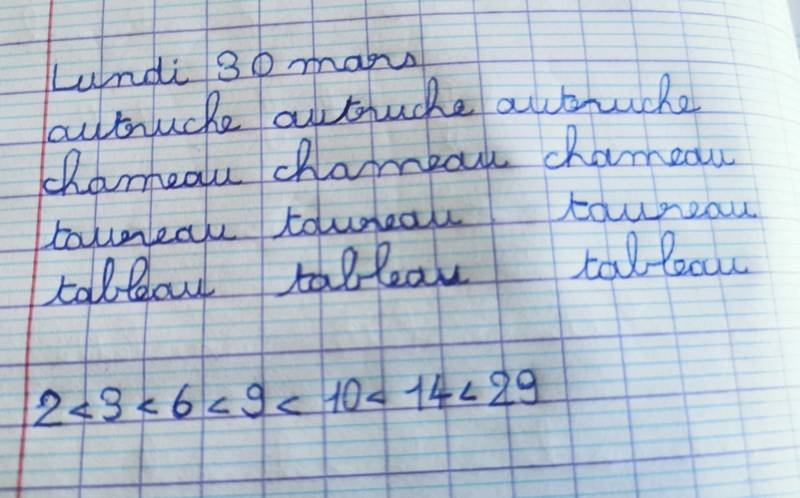 Lundi 30 mars
autruche autruche autruche
chameau chameau chameau
taureau taureau taureau
tableau tableau tableau
2 < 3 < 6 < 9 < 10 < 14 < 29